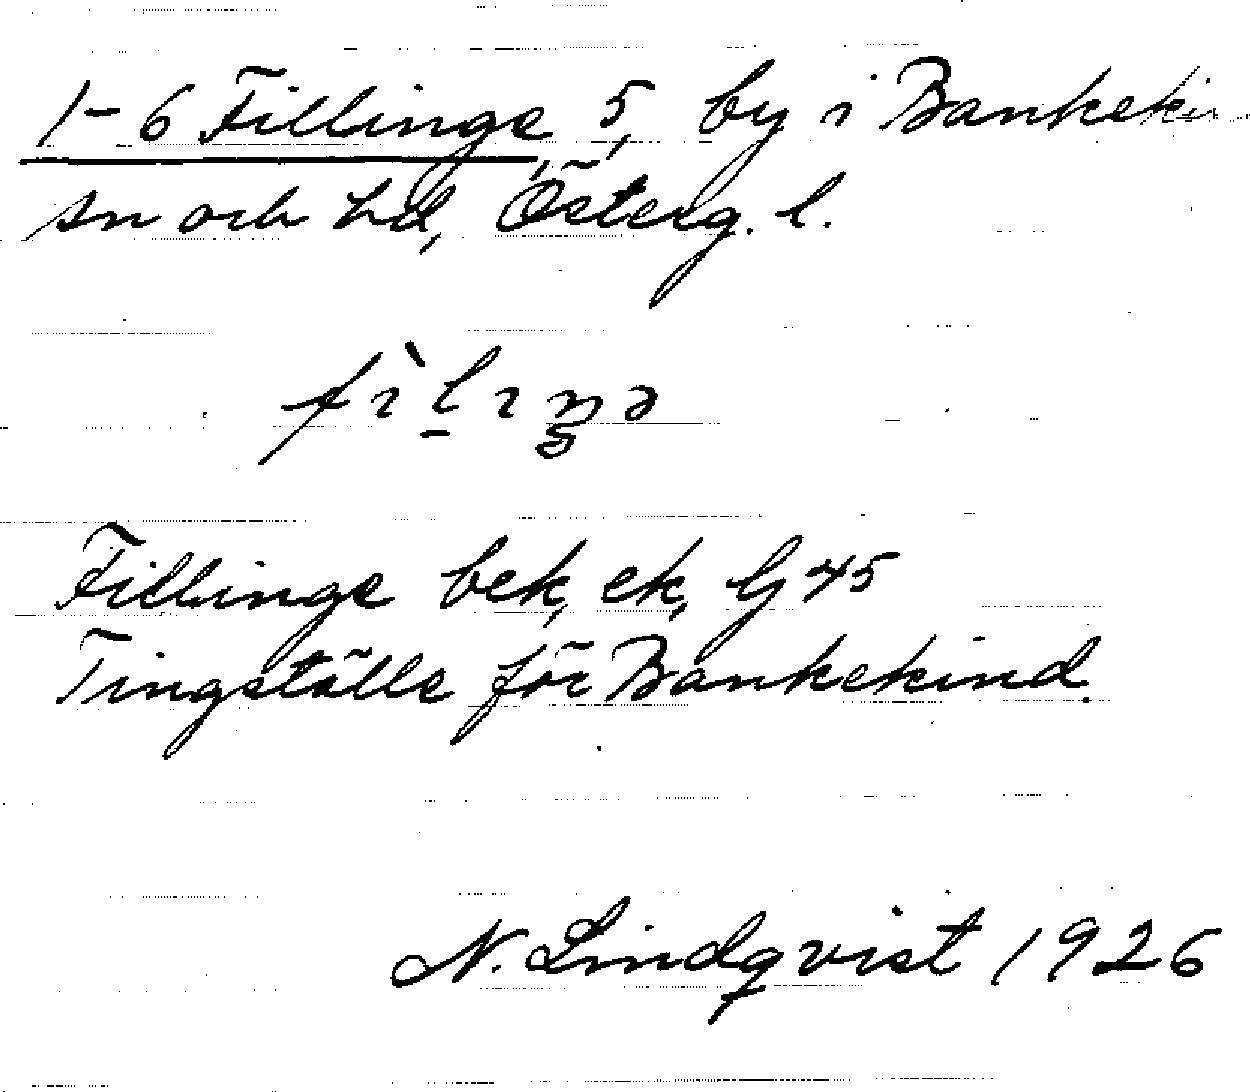 1-6 Fillinge, 5, by i Bankeki
sn och hd, Österg. l.
Fillinge bek, ek, G 45
Tingställe för Bankekind.
N. Lindqvist 1926